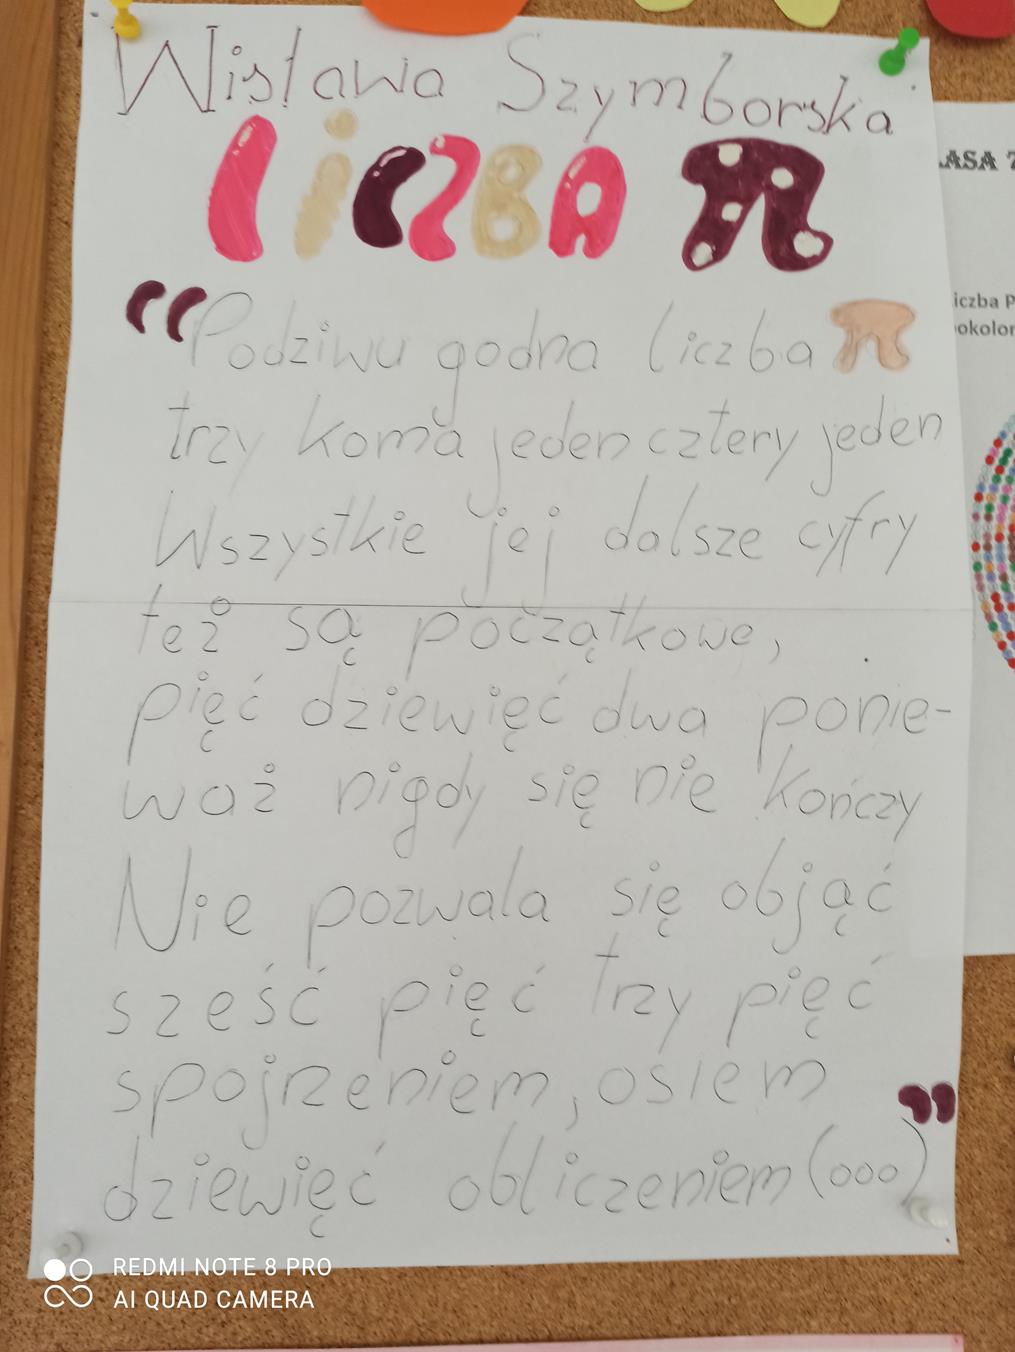 Wisława Szymborska
LiCZBA π
“Podziwu godna liczba π
trzy koma jeden cztery jeden
Wszystkie jej dalsze cyfry
też są początkowe,
pięć dziewięć dwa ponie-
waż nigdy się nie kończy
Nie pozwala się objąć
sześć pięć trzy pięć
spojrzeniem, osiem
dziewięć obliczeniem (ooo)”
LASA 7
iczba P
okolor
REDMI NOTE 8 PRO
AI QUAD CAMERA